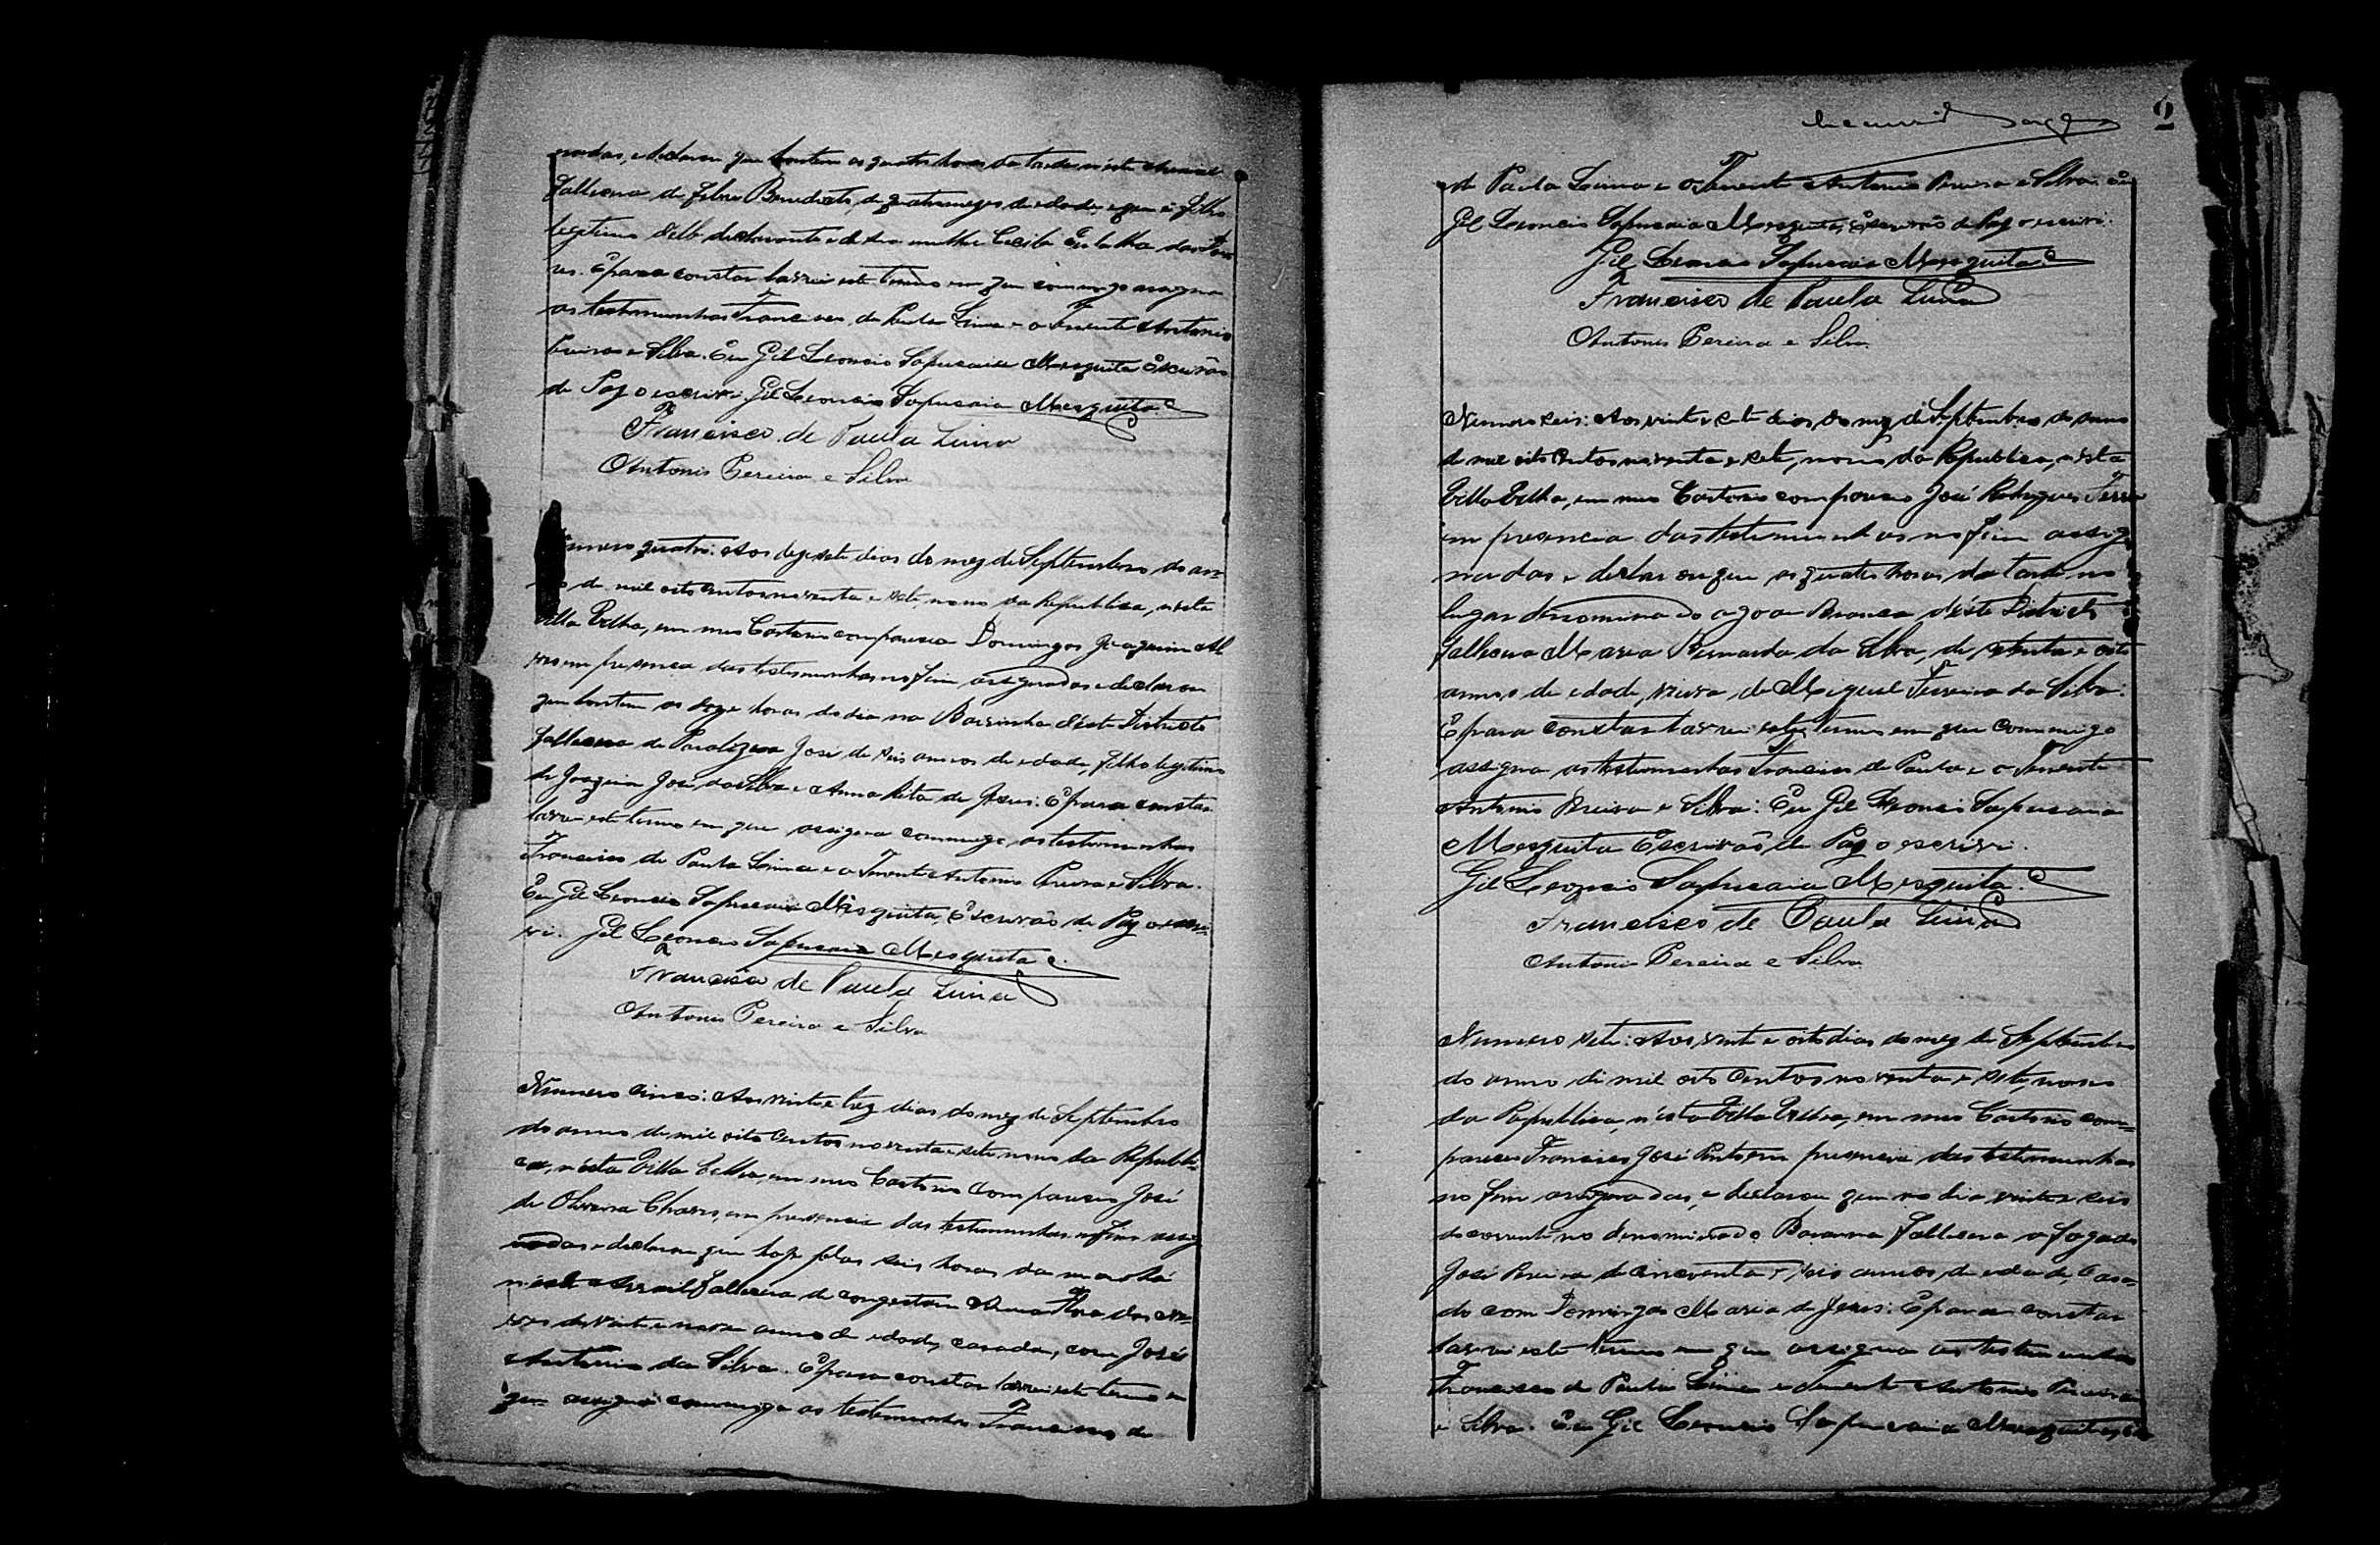 nadas, e declarou que hontem as quatro horas da tarde n'este Arraial
falleceu de febre Benedicto, de quatro mezes de edade, e que é filho
legitimo d'elle declarante e de sua mulher Cecilia Eulalia das
E para constar lavrei este termo em que commigo assigna
as testemunhas Francisco de Paula Lima e o Tenente Antonio
Pereira e Silva. Eu Gil Leoncio Sapucaia Mesquita Escrivão
de Paz o escrivi. Gil Leoncio Sapucaia Mesquita
Francisco de Paula Lima
Antonio Pereira e Silva
Numero quatro: Aos dezesete dias do mez de Septembro do an-
no de mil oito centos noventa e sete, nono da Republica, nesta
Villa Velha, em meu Cartorio compareceu Domingos Joaquim Al
ves em presença das testemunhas no fim assignadas e declarou
que hontem as doze horas do dia na Barrinha d'este Districto
falleceu de Paralizia José de seis annos de edade, filho legitimo
de Joaquim José da Silva e Anna Rita de Jesus. E para constar
lavrei este termo em que assigna commigo, as testemunhas
Francisco de Paula Lima e o Tenente Antonio Pereira e Silva.
Eu Gil Leoncio Sapucaia Mesquita, Escrivão de Paz o escri-
vi. Gil Leoncio Sapucaia Mesquita
Francisco de Paula Lima
Antonio Pereira e Silva
Numero cinco: Aos vinte e trez dias do mez de Septembro
do anno de mil oito centos noventa e sete nono da Republi-
ca, n'esta Villa Velha, em meu Cartorio compareceu José
de Oliveira Chaves, em presencia das testemunhas no fim assig
nadas e declarou que hoje pelas seis horas da manhã
n'este Arraial falleceu de congestão Anna Roza das Ne-
ves de vinte e nove annos de edade, casada, com José
Antonio da Silva. E para constar lavrei este termo em
que assigna commigo as testemunhas Francisco de
2
de Paula Lima e o Tenente Antonio Pereira e Silva. Eu
Gil Leoncio Sapucaia Mesquita, Escrivão de Paz o escrivi.
Gil Leoncio Sapucaia Mesquita
Francisco de Paula Lima
Antonio Pereira e Silva
Numero seis: Aos vinte e sete dias do mez de Septembro do anno
de mil oito centos noventa e sete, nono da Republica, n'esta
Villa Velha, em meu Cartorio compareceu José Rodrigues
em presencia das testemunhas no fim assig
nadas e declarou que as quatro horas da tarde no
lugar denominado agoa Branca d'este Districto
falleceu Maria Bernarda da Silva, de setenta e oito
annos de edade, viuva de Miguel Ferreira da Silva:
E para constar lavrei este termo em que commigo
assigna as testemunhas Francisco de Paula e o Tenente
Antonio Pereira e Silva: Eu Gil Leoncio Sapucaia
Mesquita Escrivão de Paz o escrivi.
Gil Leoncio Sapucaia Mesquita.
Francisco de Paula Lima
Antonio Pereira e Silva
Numero sete: Aos vinte e oito dias do mez de Septembro
do anno de mil oito centos noventa e sete, nono
da Republica, n'esta Villa Velha, em meu Cartorio com-
pareceu Francisco José Pinto em presencia das testemunhas
no fim assignadas, e declarou que no dia vinte e seis
do corrente no denominado falleceu afogado
José Pereira de cincoenta e seis annos, de edade, Casa-
do com Domingas Maria de Jesus: E para constar
lavrei este termo em que assigna as testemunhas
Francisco de Paula Lima e Tenente Antonio Pereira
e Silva. Eu Gil Leoncio Sapucaia Mesquita, Es